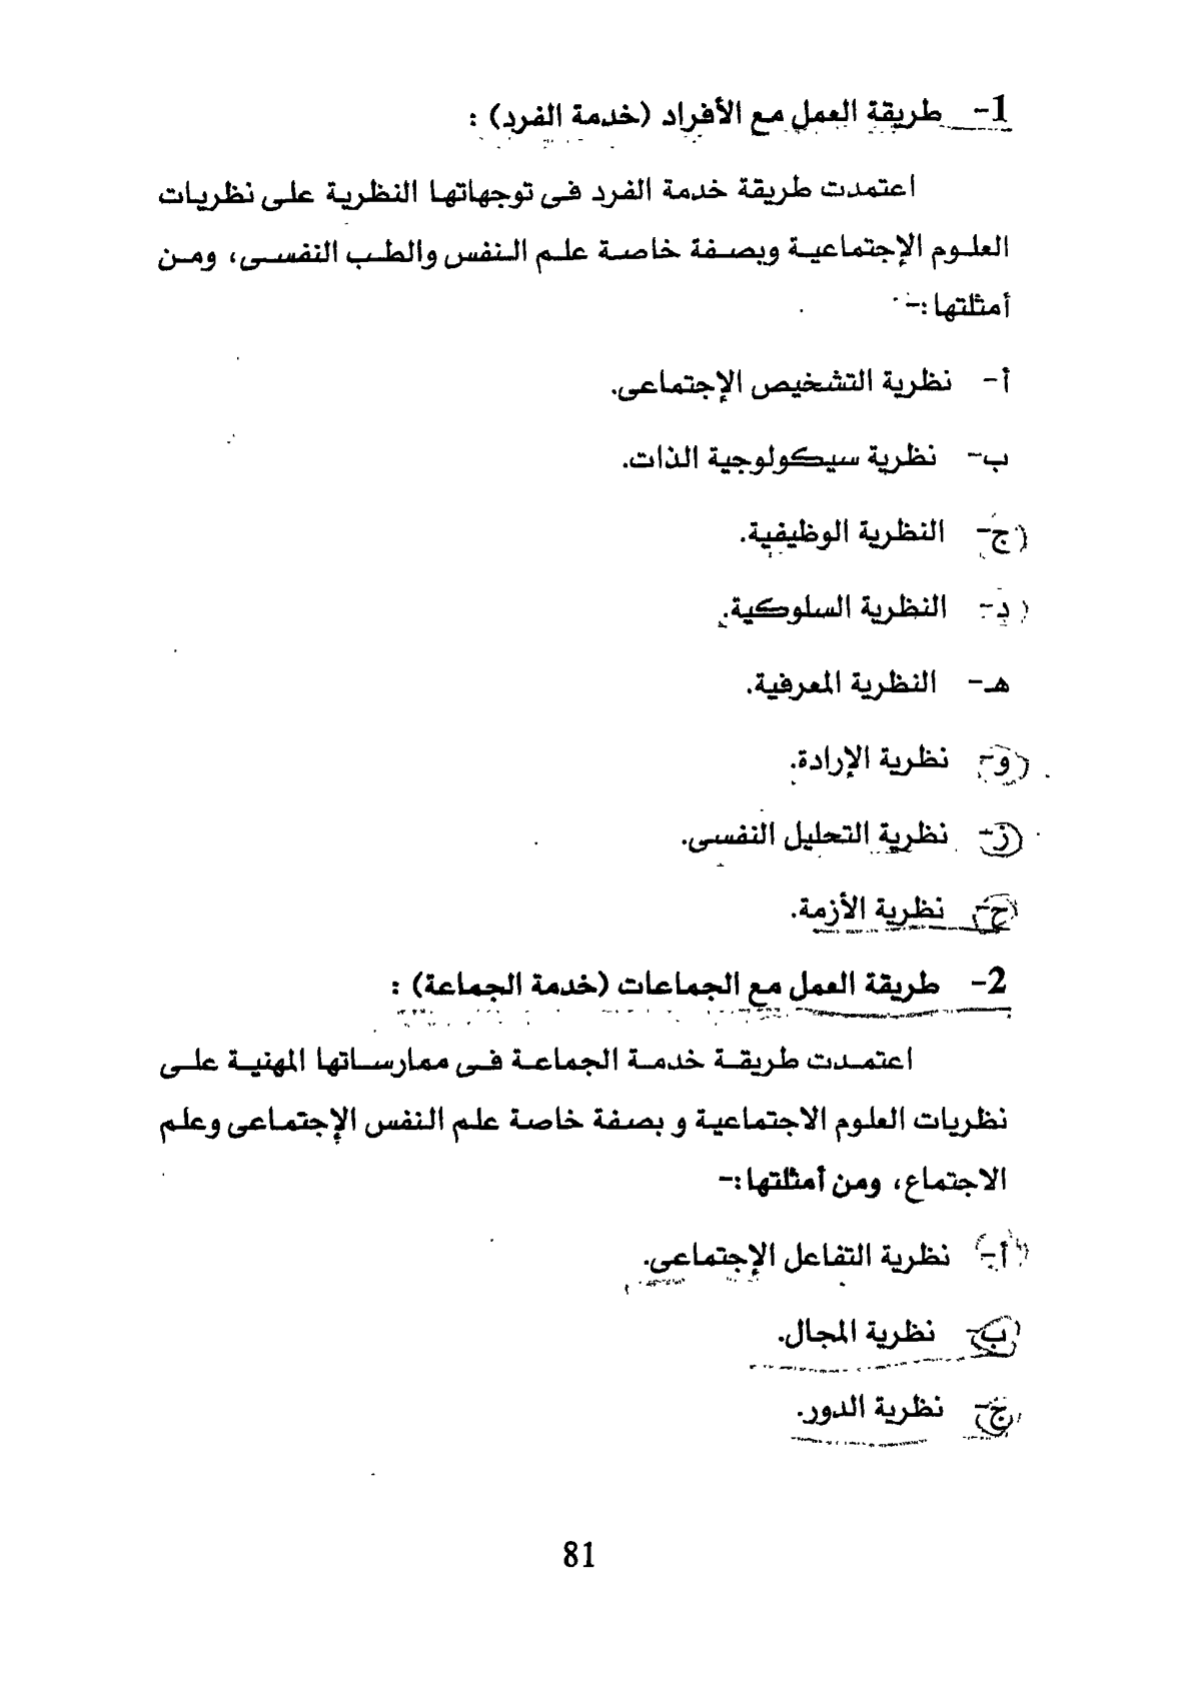 1- طريقة العمل مع الأفراد (خدمة الفرد) :
اعتمدت طريقة خدمة الفرد فى توجهاتها النظرية على نظريات
العلوم الإجتماعية وبصفة خاصة علم النفس والطب النفسى، ومن
أمثلتها :-
أ- نظرية التشخيص الإجتماعى.
ب- نظرية سيكولوجية الذات.
ج- النظرية الوظيفية.
د- النظرية السلوكية.
هـ- النظرية المعرفية.
و- نظرية الإرادة.
ز- نظرية التحليل النفسى.
ح- نظرية الأزمة.
2- طريقة العمل مع الجماعات (خدمة الجماعة) :
اعتمدت طريقة خدمة الجماعة فى ممارساتها المهنية على
نظريات العلوم الاجتماعية و بصفة خاصة علم النفس الإجتماعى وعلم
الاجتماع، ومن أمثلتها :-
أ- نظرية التفاعل الإجتماعى.
ب- نظرية المجال.
ج- نظرية الدور.
81